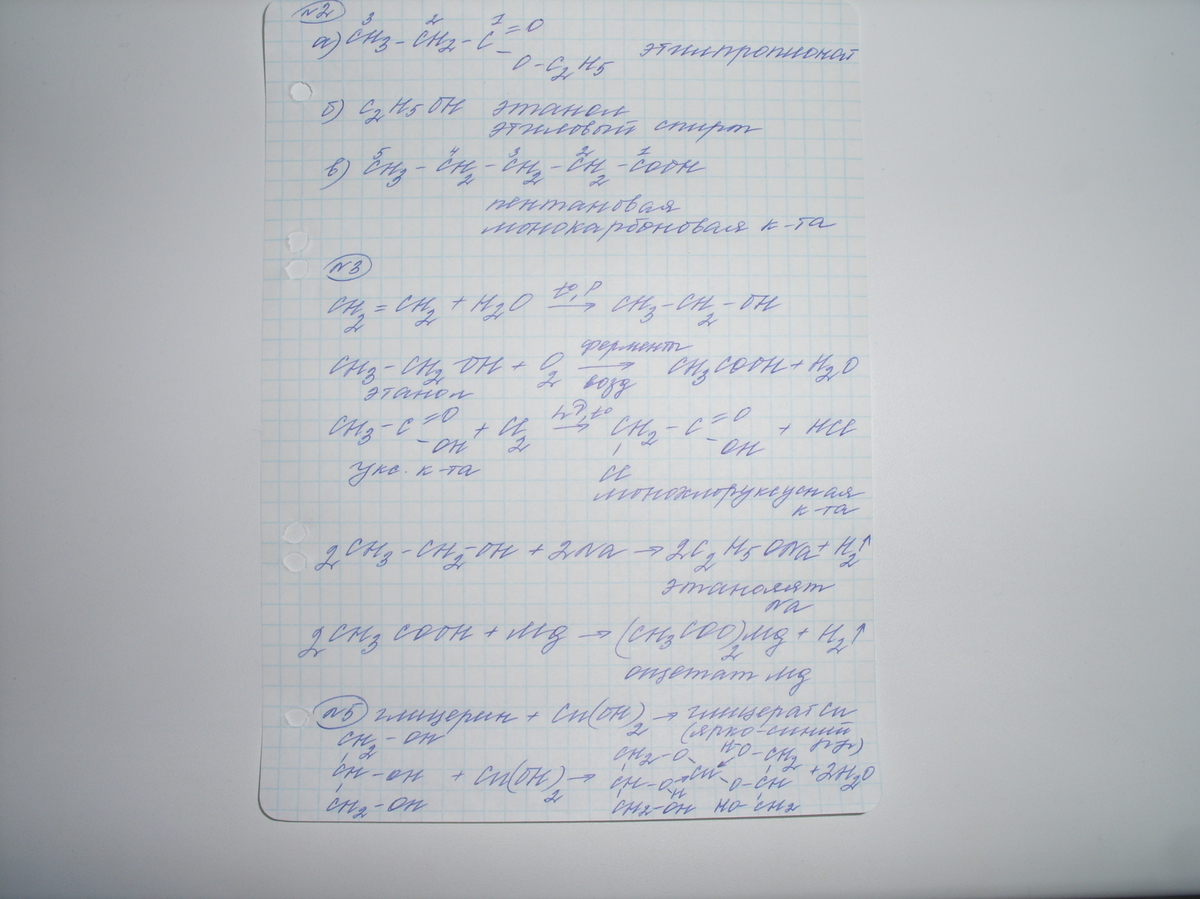 №2
а) CH3 - CH2 - C =O этилпропионат
3 2 1
- O - C2H5
б) C2H5OH этанол
этиловый спирт
в) CH3 - CH2 - CH2 - CH2 - COOH
5 4 3 2 1
пентановая
монокарбоновая к-та
№3
CH2 = CH2 + H2O t°, P → CH3 - CH2 - OH
CH3 - CH2 OH + O2 фермент → CH3COOH + H2O
этанол возд
CH3 - C =O - OH + Cl2 hν, t° → CH2 - C =O - OH + HCl
укс. к-та Cl
монохлоруксусная
к-та
2CH3 - CH2 - OH + 2Na → 2C2H5ONa + H2↑
этанолят
Na
2CH3COOH + Mg → (CH3COO)2Mg + H2↑
ацетат Mg
№5 глицерин + Cu(OH)2 → глицерат Cu
(ярко-синий
CH2 - OH CH2 - O H O - CH2
CH - OH + Cu(OH)2 → CH - O Cu - O - CH + 2H2O
H
CH2 - OH CH2 - OH HO - CH2